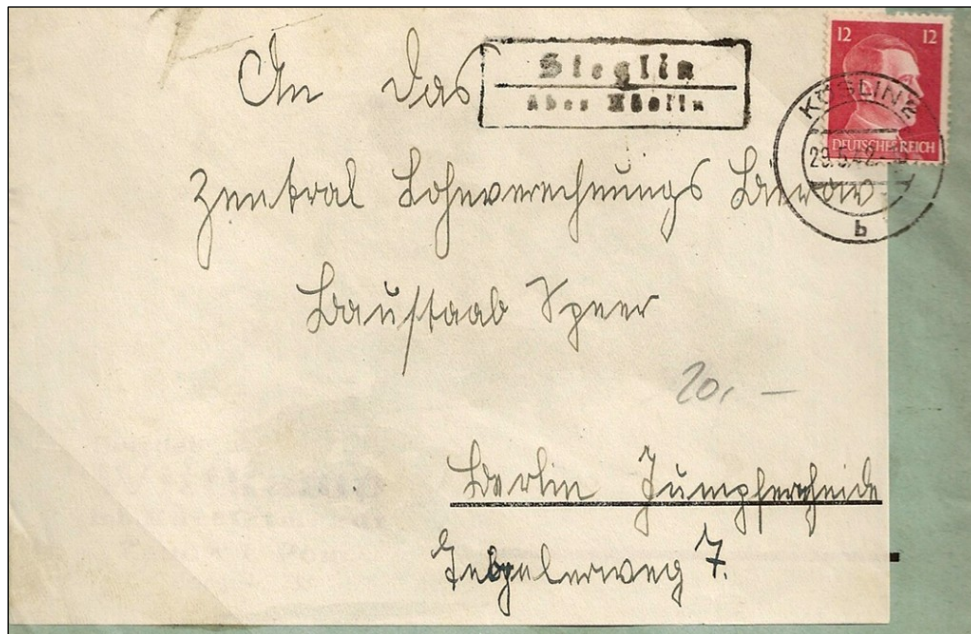 An das
Steglin
über Köslin
12 12
DEUTSCHES REICH
KÖSLIN 2
29.5.42
b
Zentral Lohnverechnungs Büro
Baustaab Speer
20,-
Berlin Jumpferheide
Tegelerweg 7.